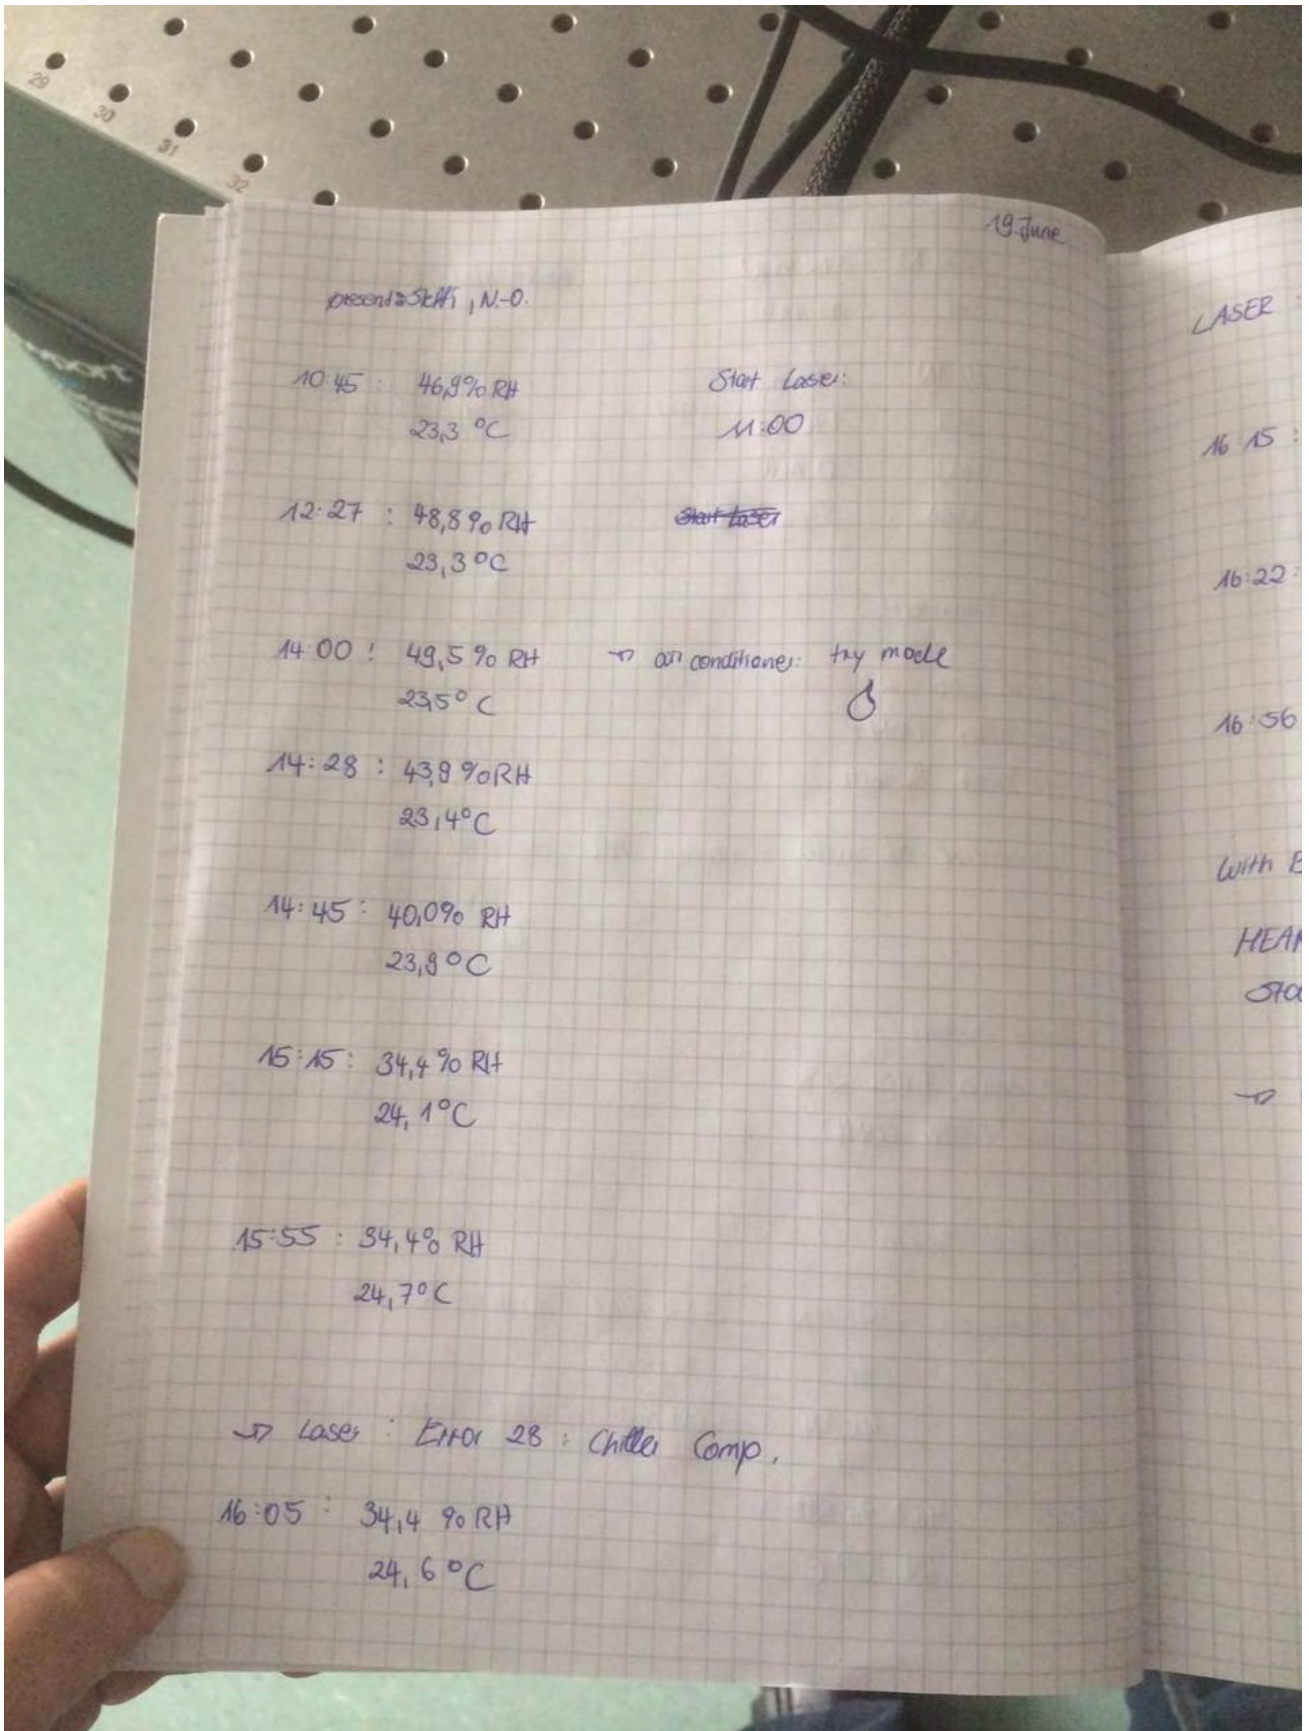 29
30
31
32
19. June
, N.-O.
10:45 : 46,9% RH Start Laser:
23,3 °C 11:00
12:27 : 48,8% RH Start Laser
23,3 °C
14:00 : 49,5% RH → air conditioner: try mode
23,5° C
14:28 : 43,9 % RH
23,4°C
14:45 : 40,0% RH
23,9 °C
15:15 : 34,4 % RH
24,1°C
15:55 : 34,4% RH
24,7°C
→ Laser : Error 28 : Chiller Comp.
16:05 : 34,4 % RH
24,6 °C
LASER :
16:15 :
16:22 :
16:56
With
→